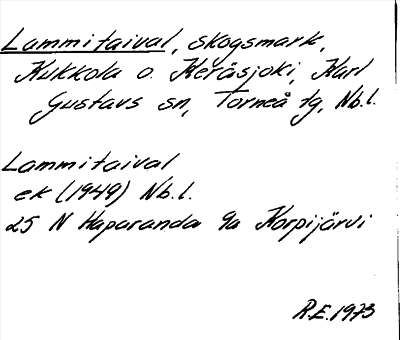 Lammitaival, skogsmark,
Kukkola o. Keräsjoki, Karl
Gustavs sn, Torneå tg, Nb.l.
Lammitaival
ek (1949) Nb.l.
25 N Haparanda 9a Korpijärvi
R.E. 1973